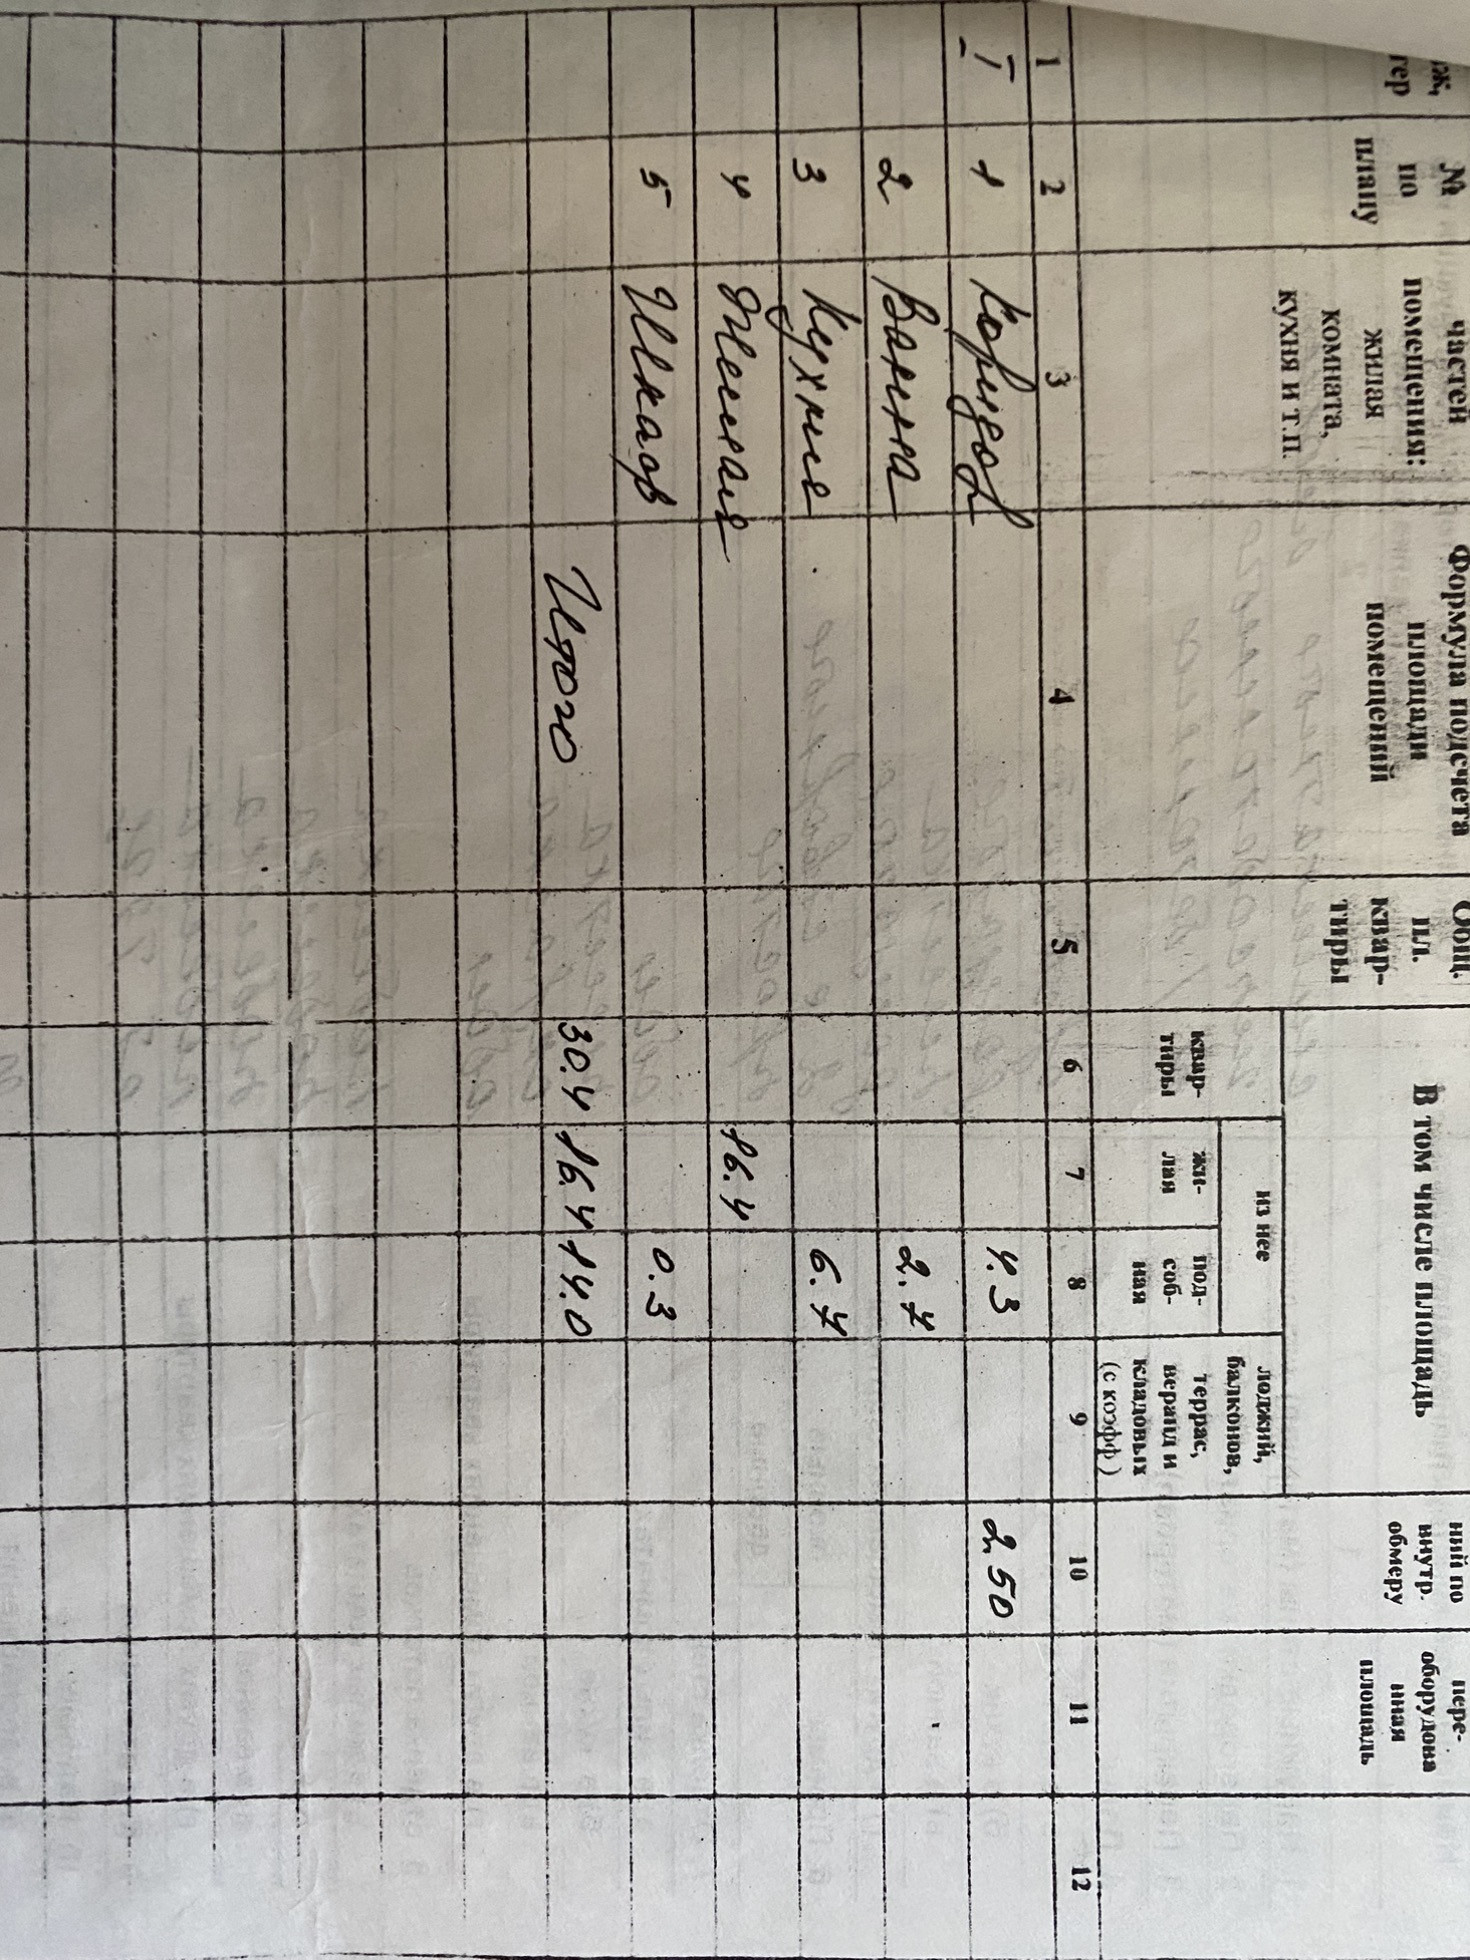 № по плану
частей помещения: жилая комната, кухня и т.п.
Формула подсчета площади помещений
Общ. пл. квар-тиры
В том числе площадь
квар-тиры
из нее
жи-лая
под-соб-ная
лоджий, балконов, террас, веранд и кладовых (с коэфф)
ний по внутр. обмеру
пере-оборудова нная площадь
1 2 3 4 5 6 7 8 9 10 11 12
I 1 Коридор 4.3 2.50
2 Ванна 2.4
3 Кухня
4 Жилая 16.4
5 Шкаф 0.3
Итого 30.4 16.4 14.0